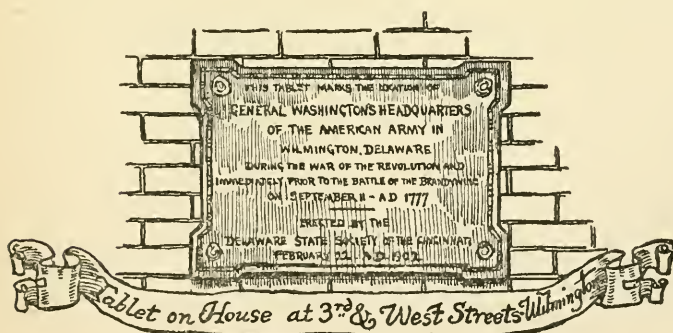 THIS TABLET MARKS THE LOCATION OF
GENERAL WASHINGTON'S HEADQUARTERS
OF THE AMERICAN ARMY IN
WILMINGTON, DELAWARE
DURING THE WAR OF THE REVOLUTION AND
IMMEDIATELY PRIOR TO THE BATTLE OF THE BRANDYWINE
ON SEPTEMBER 11 - AD 1777
ERECTED BY THE
DELAWARE STATE SOCIETY OF THE CINCINNATI
FEBRUARY 22 A.D. 1902
Tablet on House at 3rd & West Streets Wilmington